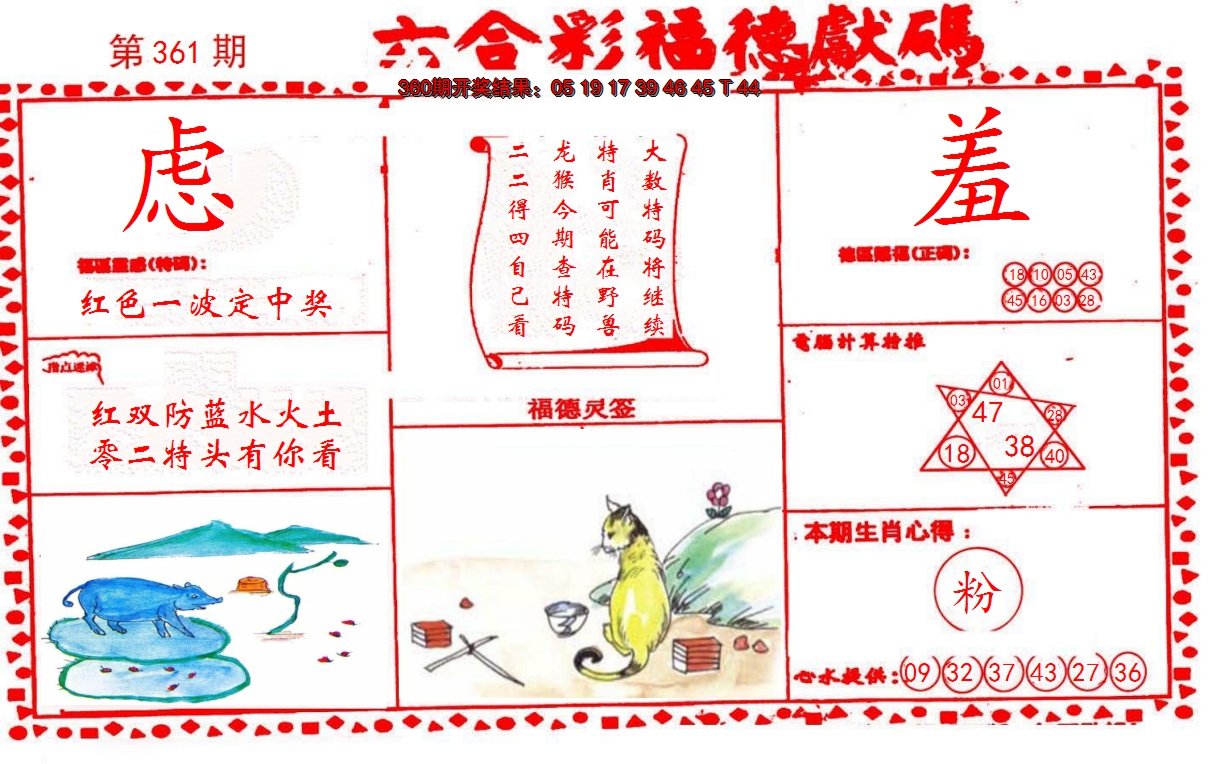 第 361 期
六合彩福德獻碼
360期开奖结果：05 19 17 39 46 45 T 44
虑
福區靈感(特碼)：
红色一波定中奖
指点迷津
红双防蓝水火土
零二特头有你看
大数特码将继续
特肖可能在野兽
龙猴今期查特码
二二得四自己看
福德灵签
羞
德區賜福(正碼)：
18 10 05 43
45 16 03 28
電腦計算推
01
03 47 28
18 38 40
45
本期生肖心得：
粉
心水提供：09 32 37 43 27 36